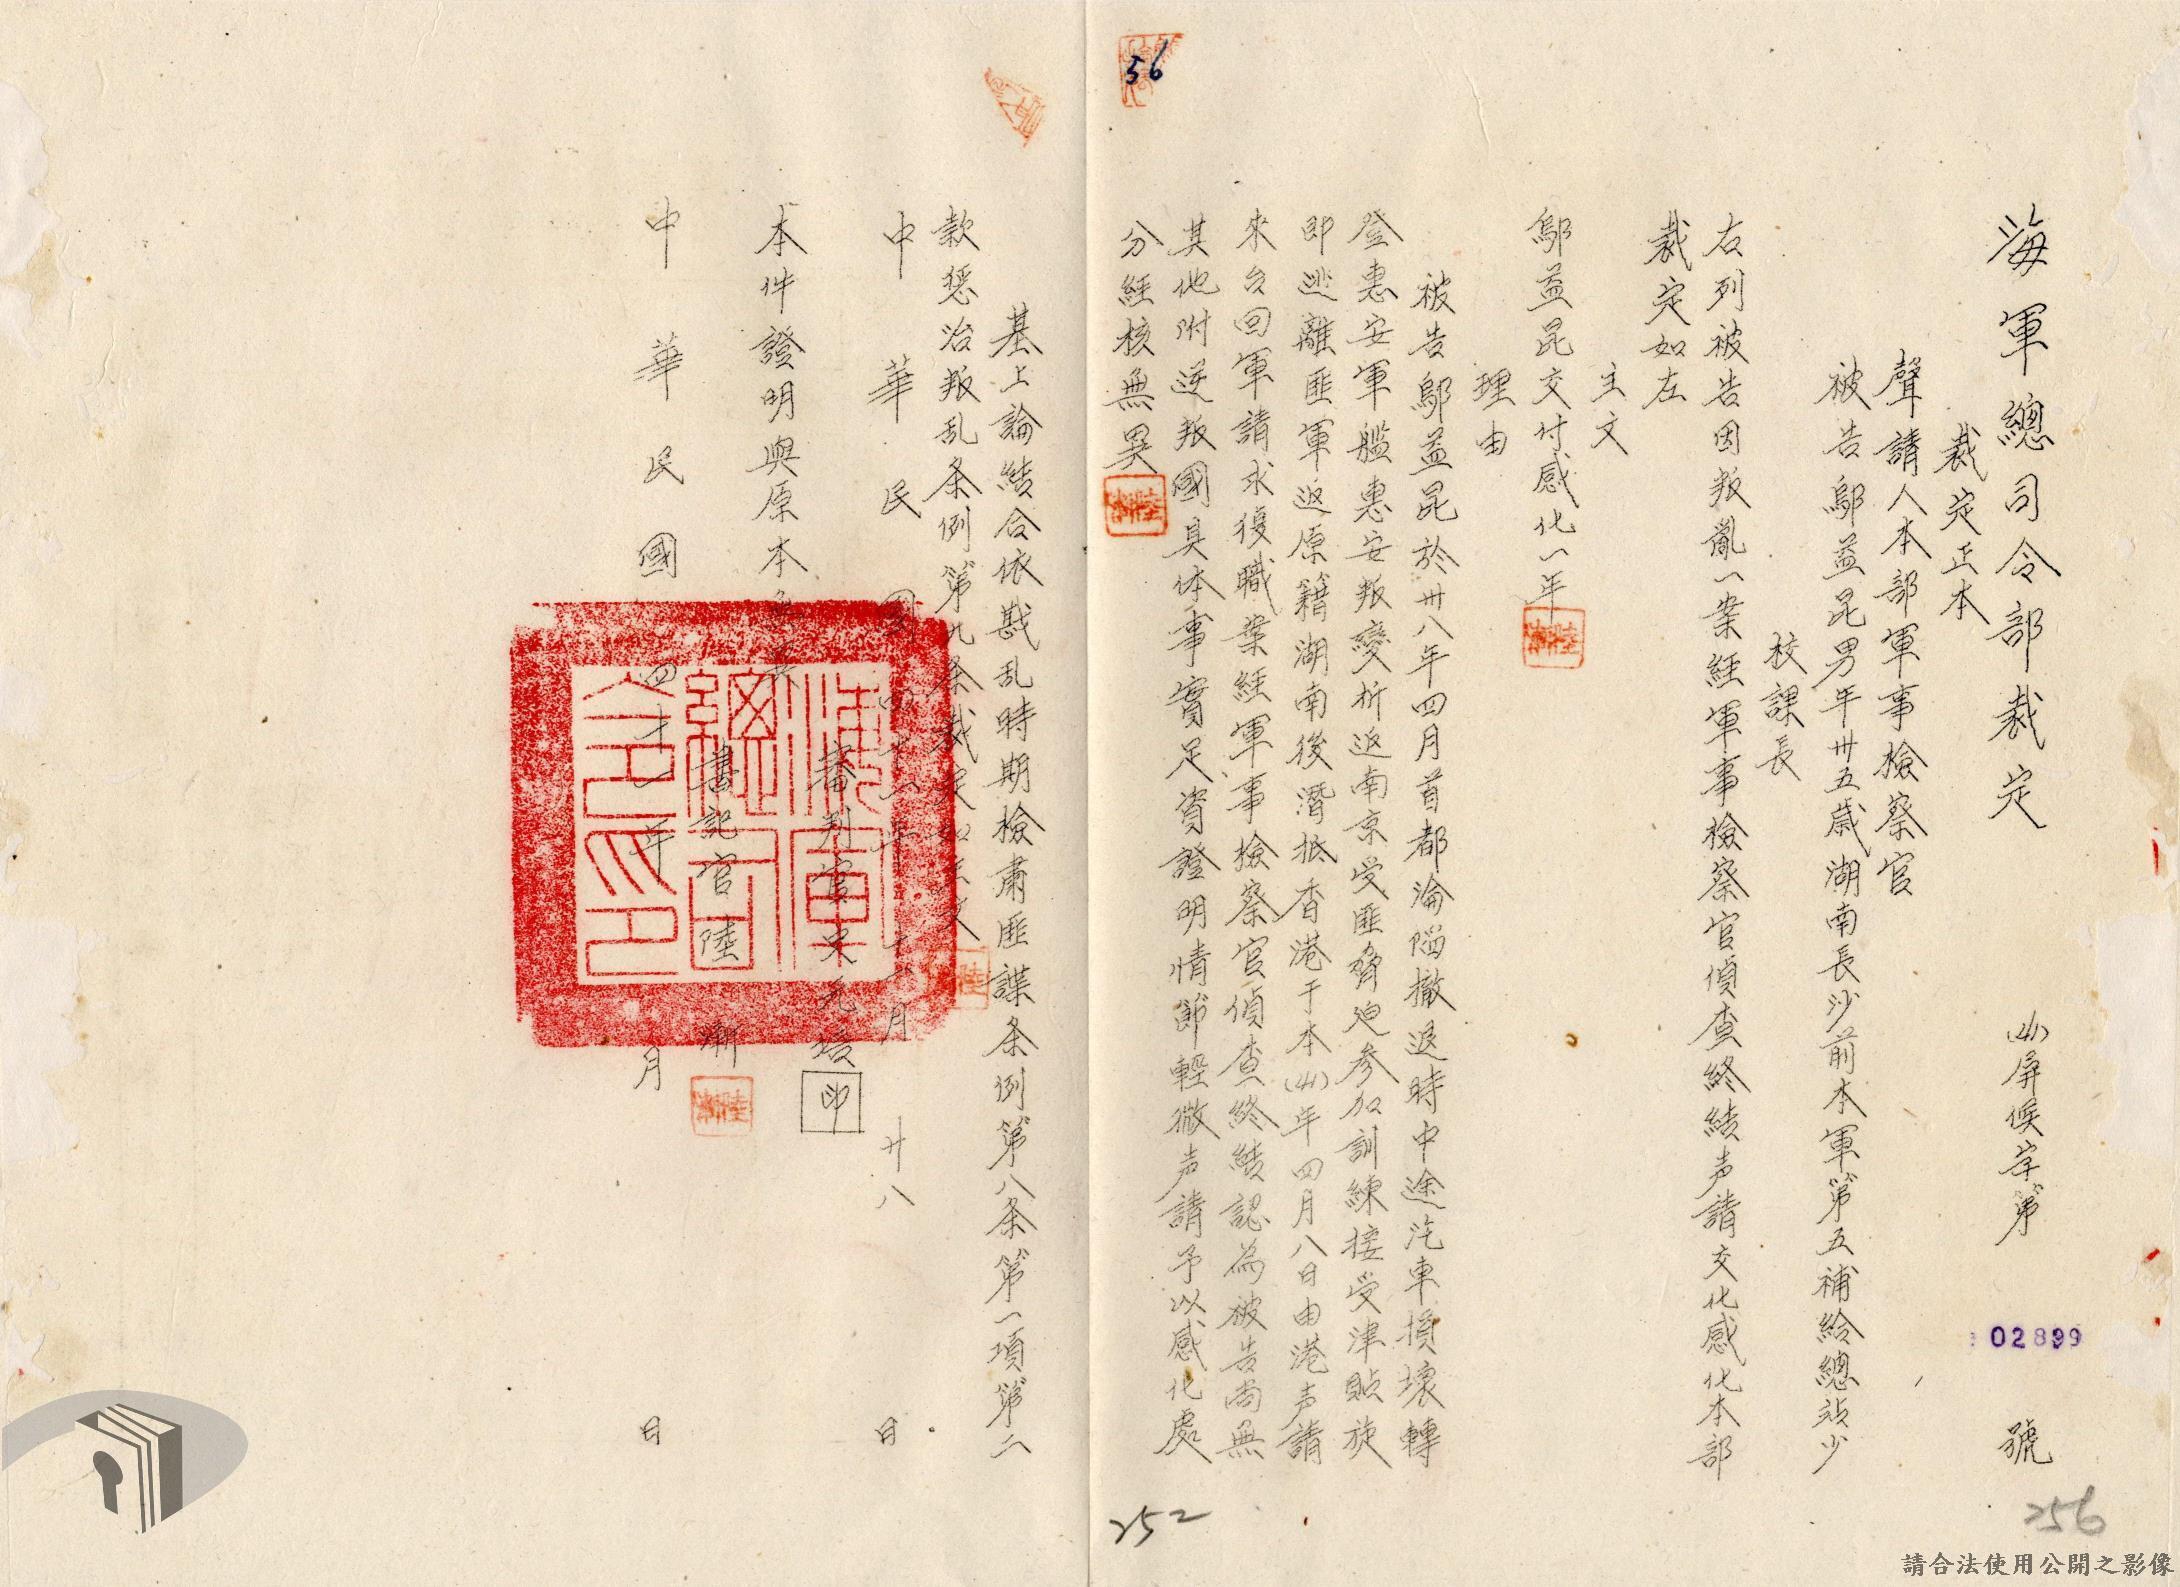 海軍總司令部裁定 (41)屏候字第 02899 號
裁定正本
聲請人本部軍事檢察官
被告鄔益昆男年卅五歲湖南長沙前本軍第五補給總站少
校課長
右列被告因叛亂一案經軍事檢察官偵查終結声請交化感化本部
裁定如左
主文
鄔益昆交付感化一年
理由
被告鄔益昆於卅八年四月首都淪陷撤退時中途汽車損壞轉
登惠安軍艦惠安叛變折返南京受匪脅廹參加訓練接受津貼旋
即逃離匪軍返原籍湖南後潛抵香港于本(41)年四月八日由港声請
來台回軍請求復職案經軍事檢察官偵查終結認為被告尚無
其他附逆叛國具体事實足資證明情節輕微声請予以感化處
分經核無異
基上論結合依戡乱時期檢肅匪諜条例第八条第一項第二
款惩治叛乱条例第九条裁定如主文
中華民國四十一年 月廿八日
審判官 元培 印
本件證明與原本無異
書記官陸漸
中華民國四十一年 月 日
56
252
256
海軍總司令印
請合法使用公開之影像